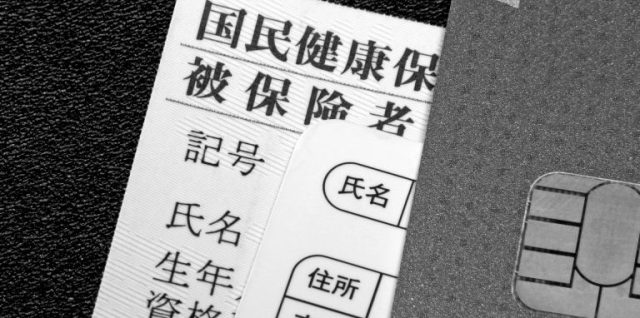 国民健康保
被保険者
記号
氏名
生年
資格
氏名
住所